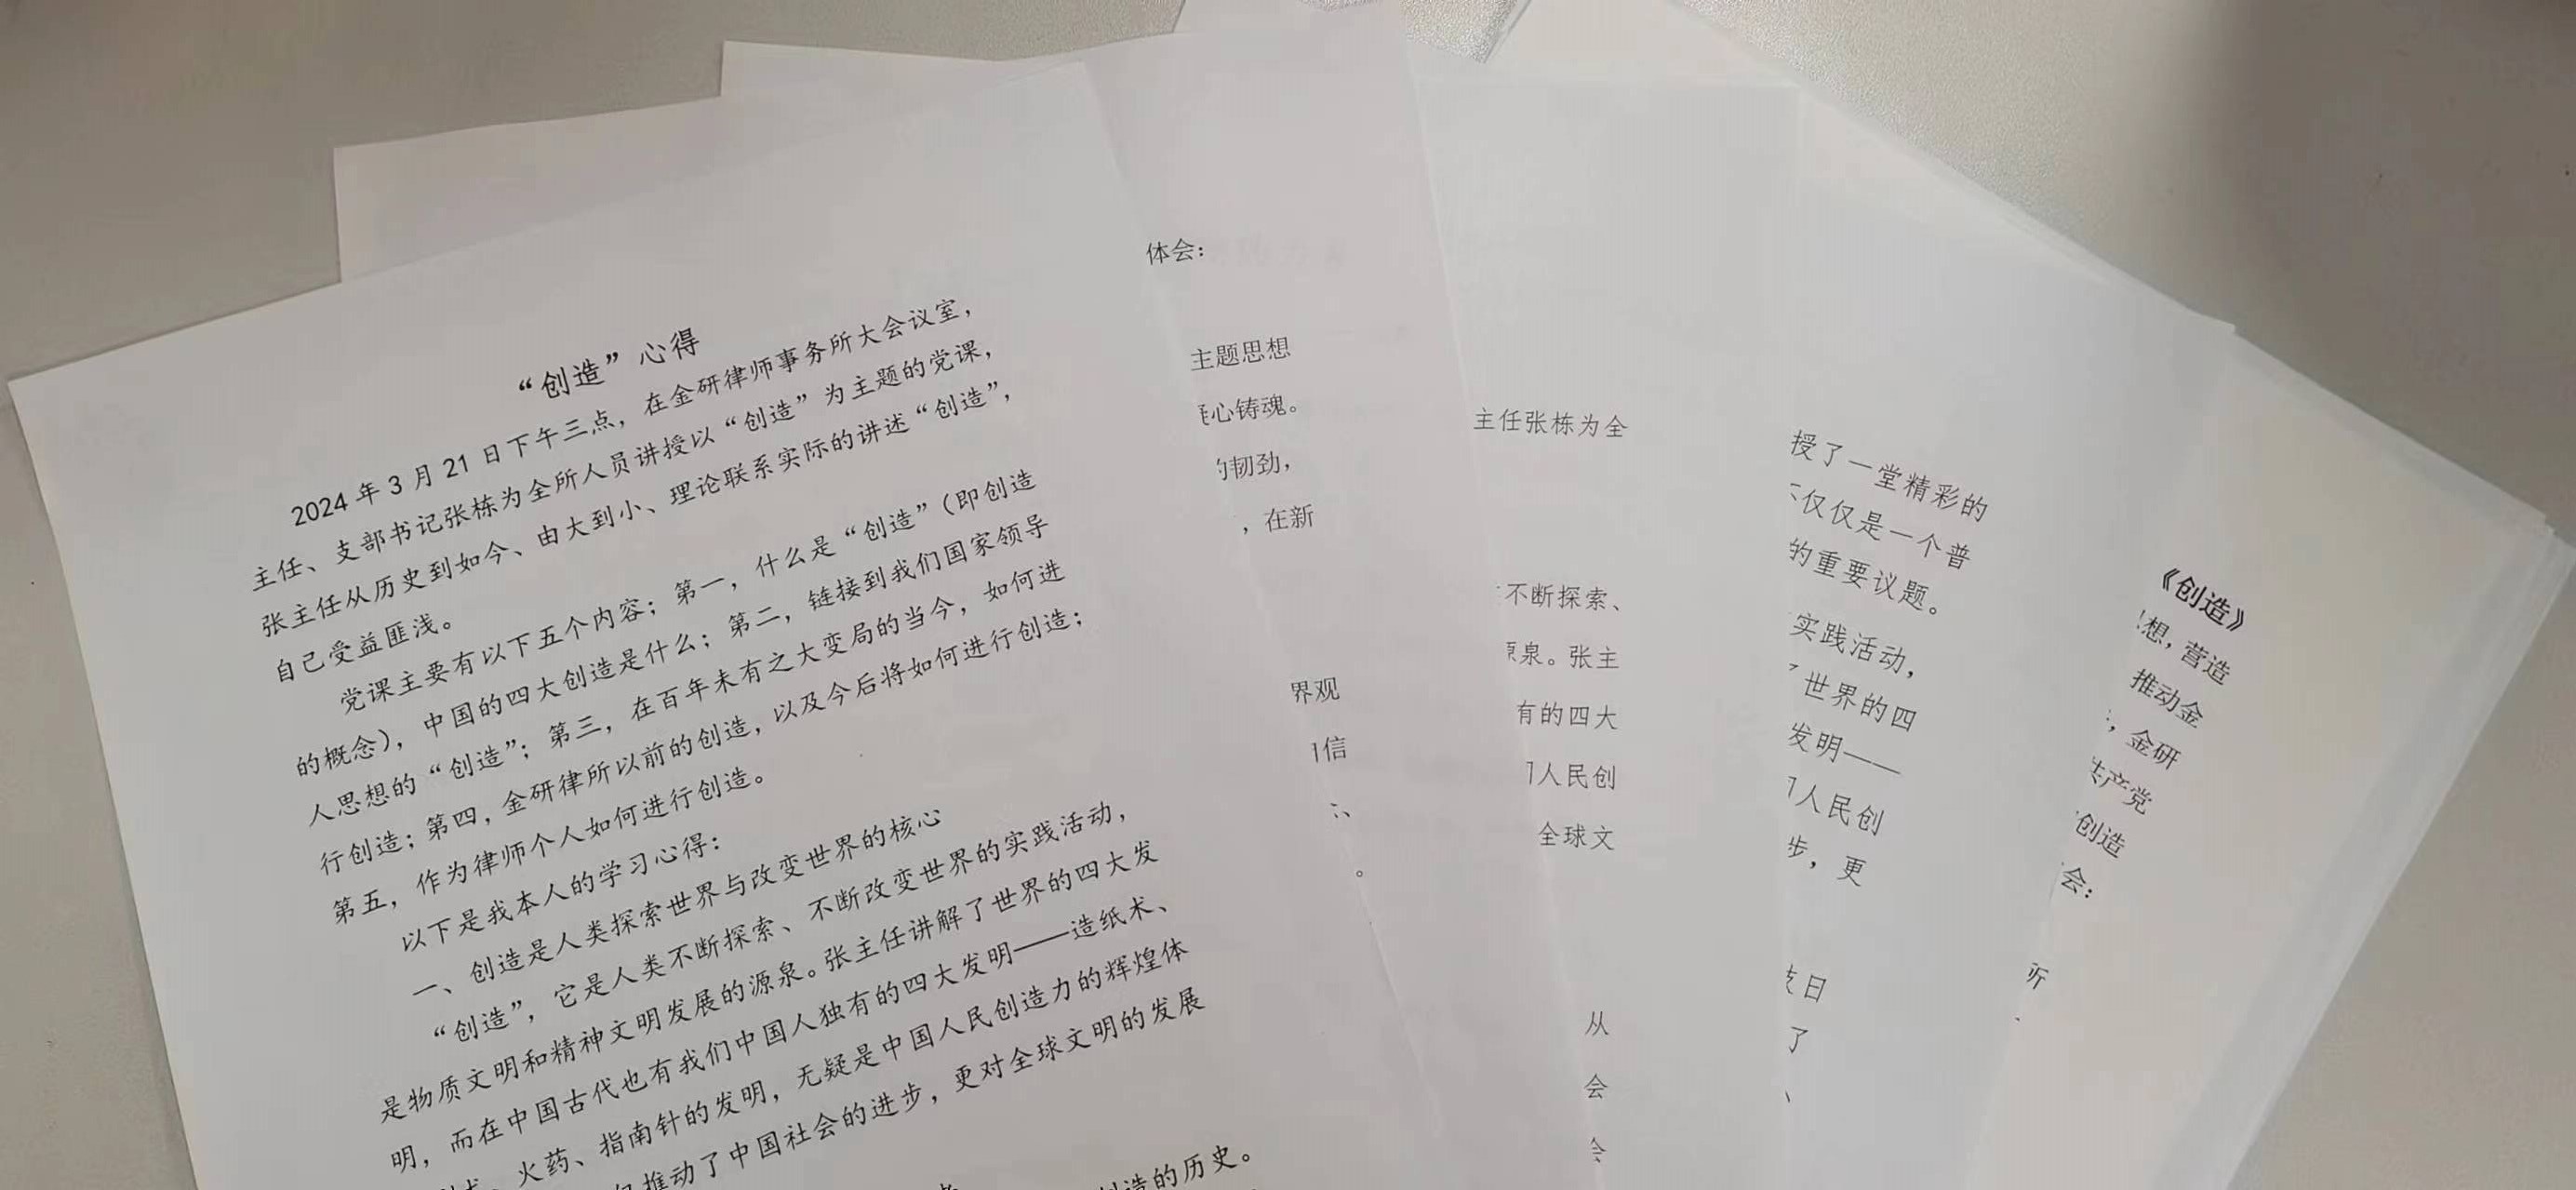 “创造”心得
2024 年 3 月 21 日下午三点，在金研律师事务所大会议室，
主任、支部书记张栋为全所人员讲授以“创造”为主题的党课，
张主任从历史到如今、由大到小、理论联系实际的讲述“创造”，
自己受益匪浅。
党课主要有以下五个内容；第一，什么是“创造”（即创造
的概念），中国的四大创造是什么；第二，链接到我们国家领导
人思想的“创造”；第三，在百年未有之大变局的当今，如何进
行创造；第四，金研律所以前的创造，以及今后将如何进行创造；
第五，作为律师个人如何进行创造。
以下是我本人的学习心得：
一、创造是人类探索世界与改变世界的核心
“创造”，它是人类不断探索、不断改变世界的实践活动，
是物质文明和精神文明发展的源泉。张主任讲解了世界的四大发
明，而在中国古代也有我们中国人独有的四大发明——造纸术、
、火药、指南针的发明，无疑是中国人民创造力的辉煌体
推动了中国社会的进步，更对全球文明的发展
造的历史。
体会：
主题思想
心铸魂。
韧劲，
，在新
界观
信
、
。
主任张栋为全
不断探索、
泉。张主
有的四大
人民创
全球文
从
会
授了一堂精彩的
仅仅是一个普
的重要议题。
实践活动，
世界的四
发明——
人民创
步，更
日
了
、
《创造》
想，营造
推动金
，金研
共产党
创造
会：